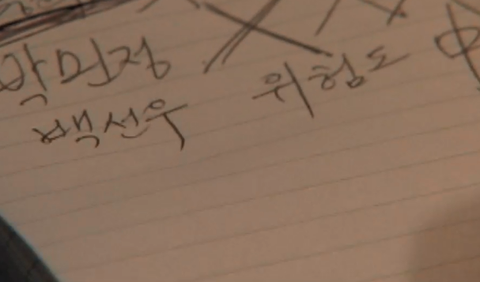 박민정
백선우 위험도 中